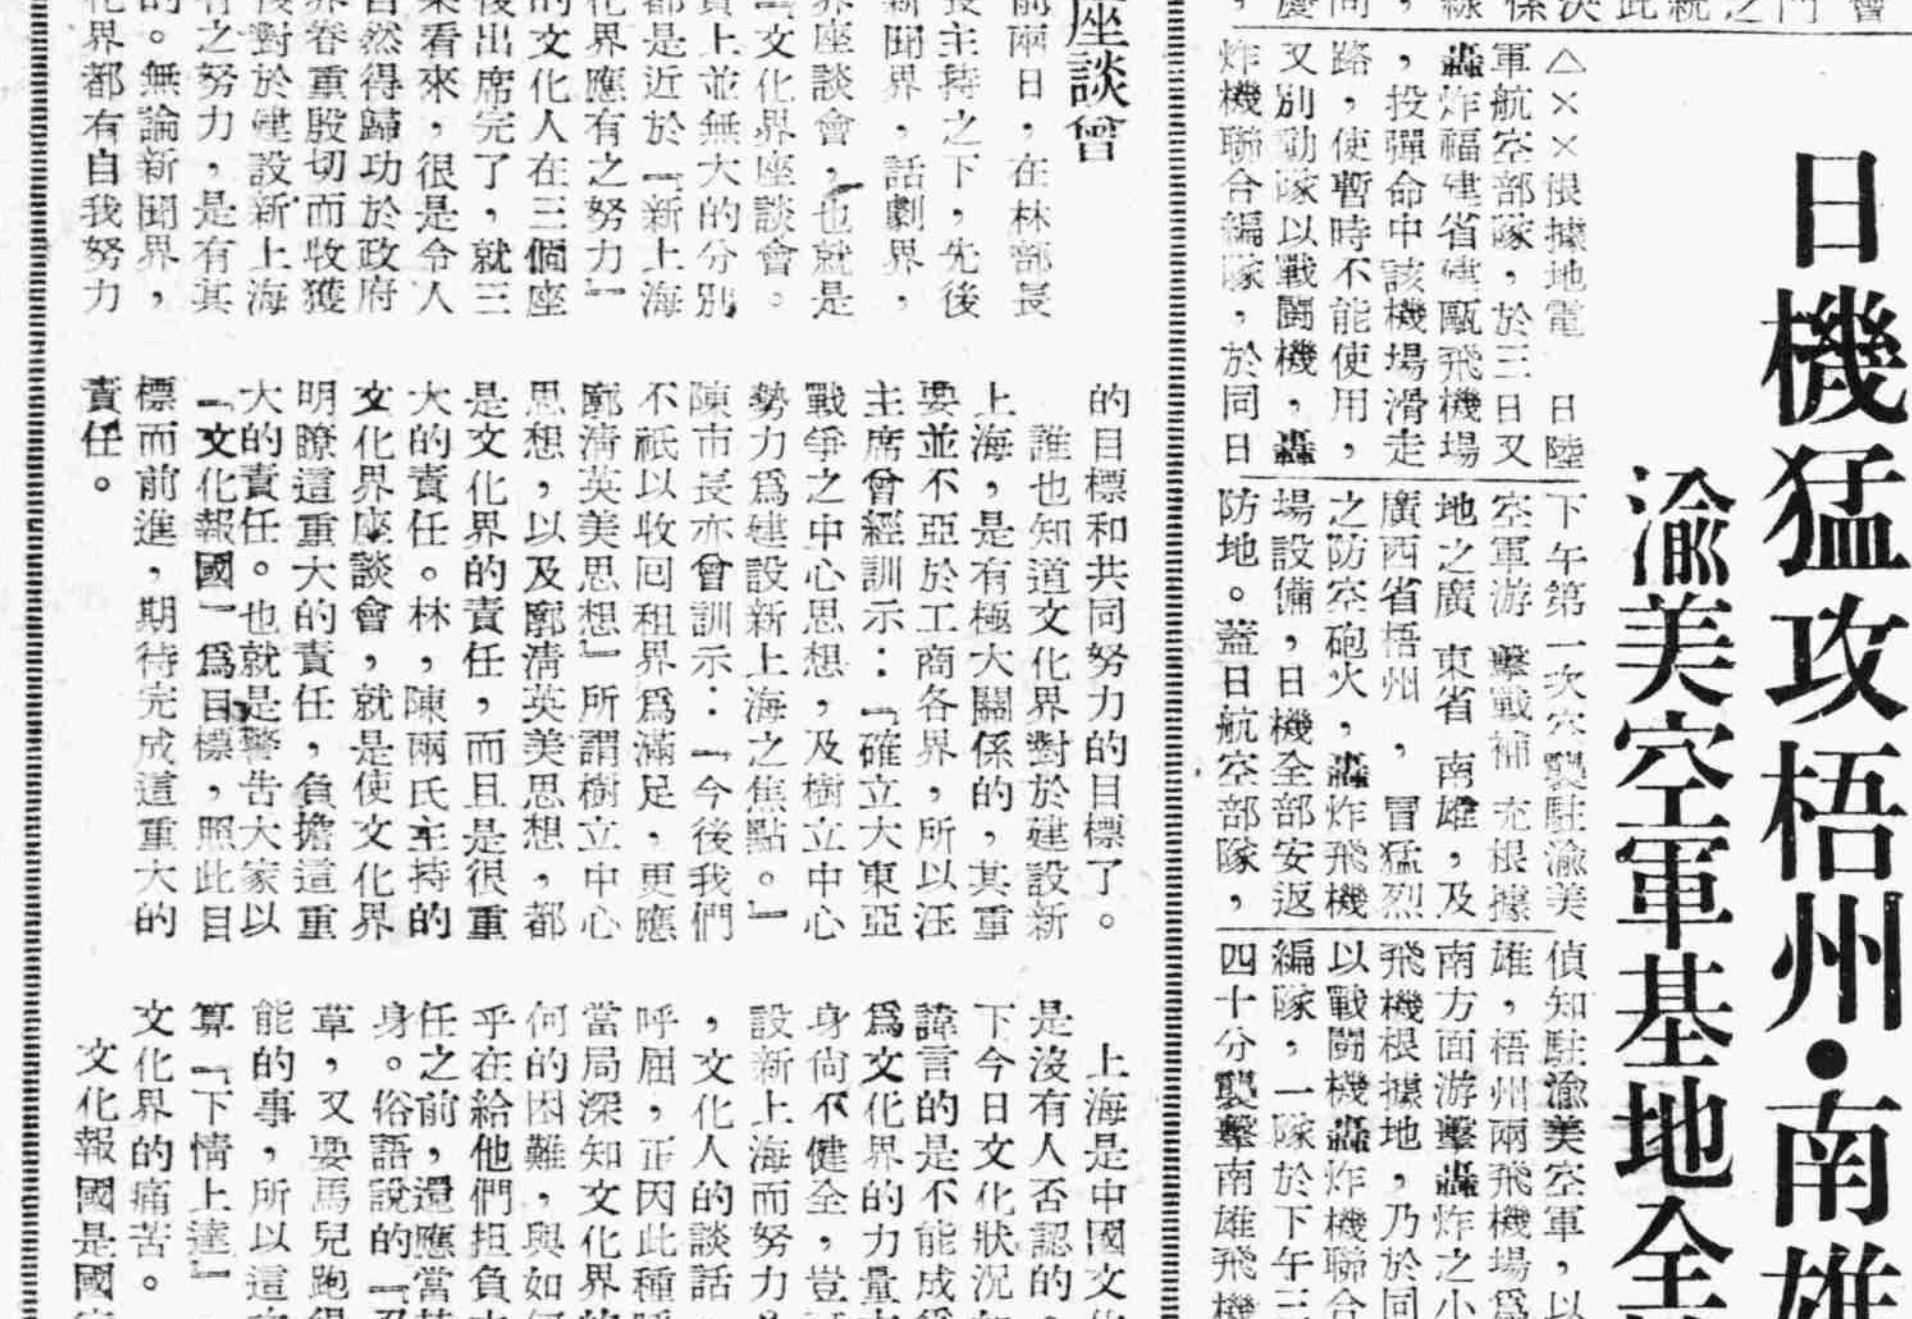 日機猛攻梧州・南雄
渝美空軍基地全
△××根據地電　日陸
軍航空部隊，於三日又
轟炸福建省建甌飛機場
，投彈命中該機場滑走
路，使暫時不能使用，
又別動隊以戰鬪機，轟
炸機聯合編隊，於同日
下午第一次突襲駐渝美
空軍游擊戰補充根據
地之廣東省南雄，及
廣西省梧州，冒猛烈
之防空砲火，轟炸飛機
場設備，日機全部安返
防地。蓋日航空部隊，
偵知駐渝美空軍，以
雄，梧州兩飛機場爲
南方面游擊轟炸之小
飛機根據地，乃於同
以戰鬪機轟炸機聯合
編隊，一隊於下午三
四十分襲擊南雄飛機
座談會
前兩日，在林部長
主持之下，先後
新聞界，話劇界，
界座談會，也就是
「文化界座談會。
上並無大的分別
都是近於「新上海
化界應有之努力」
的文化人在三個座
後出席完了，就三
來看來，很是令人
自然得歸功於政府
界眷重殷切而收獲
對於建設新上海
之努力，是有其
的。無論新聞界，
化界都有自我努力
的目標和共同努力的目標了。
誰也知道文化界對於建設新
上海，是有極大關係的，其重
要並不亞於工商各界，所以汪
主席曾經訓示：「確立大東亞
戰爭之中心思想，及樹立中心
勢力爲建設新上海之焦點。」
陳市長亦曾訓示：「今後我們
不祇以收回租界爲滿足，更應
廓清英美思想」所謂樹立中心
思想，以及廓清英美思想，都
是文化界的責任，而且是很重
大的責任。林，陳兩氏主持的
文化界座談會，就是使文化界
明瞭這重大的責任，負擔這重
大的責任。也就是警告大家以
「文化報國」爲目標，照此目
標而前進，期待完成這重大的
責任。
上海是中國文化
是沒有人否認的
下今日文化狀況
諱言的是不能成爲
爲文化界的力量
身尚不健全，豈
設新上海而努力
，文化人的談話
呼屈，正因此種
當局深知文化界的
何的困難，與如何
乎在給他們担負
任之前，還應當
身。俗語說的「
草，又要馬兒跑得
能的事，所以這
算「下情上達」
文化界的痛苦。
文化報國是國